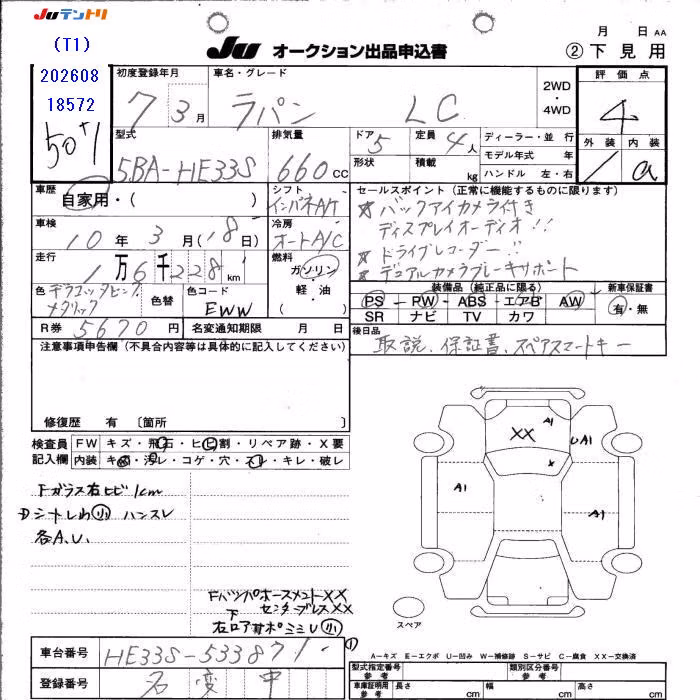 Juテントリ
(T1)
202608
18572
50+1
JU オークション出品申込書
月 日 AA
② 下見用
初度登録年月
7 3月
車名・グレード
ラパン LC
2WD
・
4WD
評価点
4
外装 内装
1 a
型式
5BA-HE33S
排気量
660cc
ドア 5
定員 4人
形状
積載 kg
ディーラー・並行
モデル年式 年
ハンドル 左・右
車歴
自家用・( )
シフト
インパネAT
セールスポイント (正常に機能するものに限ります)
☆ バックアイカメラ付き
ディスプレイオーディオ!!
☆ ドライブレコーダー!!
☆ デュアルカメラブレーキサポート
車検
10年 3月(18日)
冷房
オートA/C
走行
1万6千228km
燃料
ガソリン
軽・油
( )
色
メタリック
色替
色コード
EWW
装備品 (純正品に限る)
PS - PW - ABS - エアB AW
SR ナビ TV カワ
新車保証書
有・無
R券 5670円
名変通知期限 月 日
後日品
取説、保証書、スペアスマートキー
注意事項申告欄 (不具合内容等は具体的に記入してください)
修復歴 有 〔箇所 〕
検査員
記入欄
FW キズ・飛石・ヒビ割・リペア跡・X要
内装 キズ・汚レ・コゲ・穴・スレ・キレ・破レ
Fガラス右ヒビ1cm
Dシートしわ小 ハンスレ
各A.U.
XX
A1
UA1
A1
A1
スペア
FバンパホースメントXX
下 センターブレスXX
A-キズ E-エクボ U-凹み W-補修跡 S-サビ C-腐食 XX-交換済
車台番号 HE33S-533871
登録番号 名変中
型式指定番号
参考
類別区分番号
参考
車庫証明用
参考
長さ cm
幅 cm
高さ cm